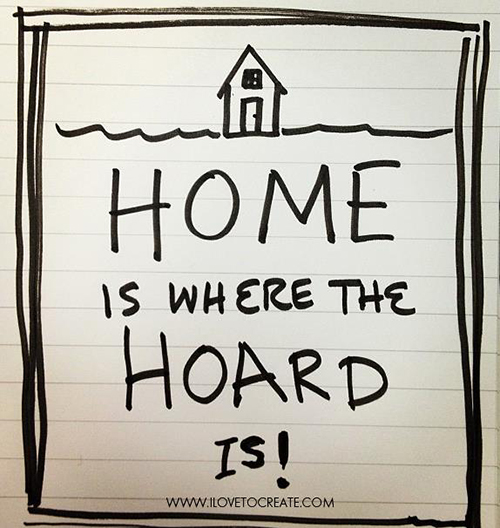 HOME
IS WHERE THE
HOARD
IS!
WWW.ILOVETOCREATE.COM